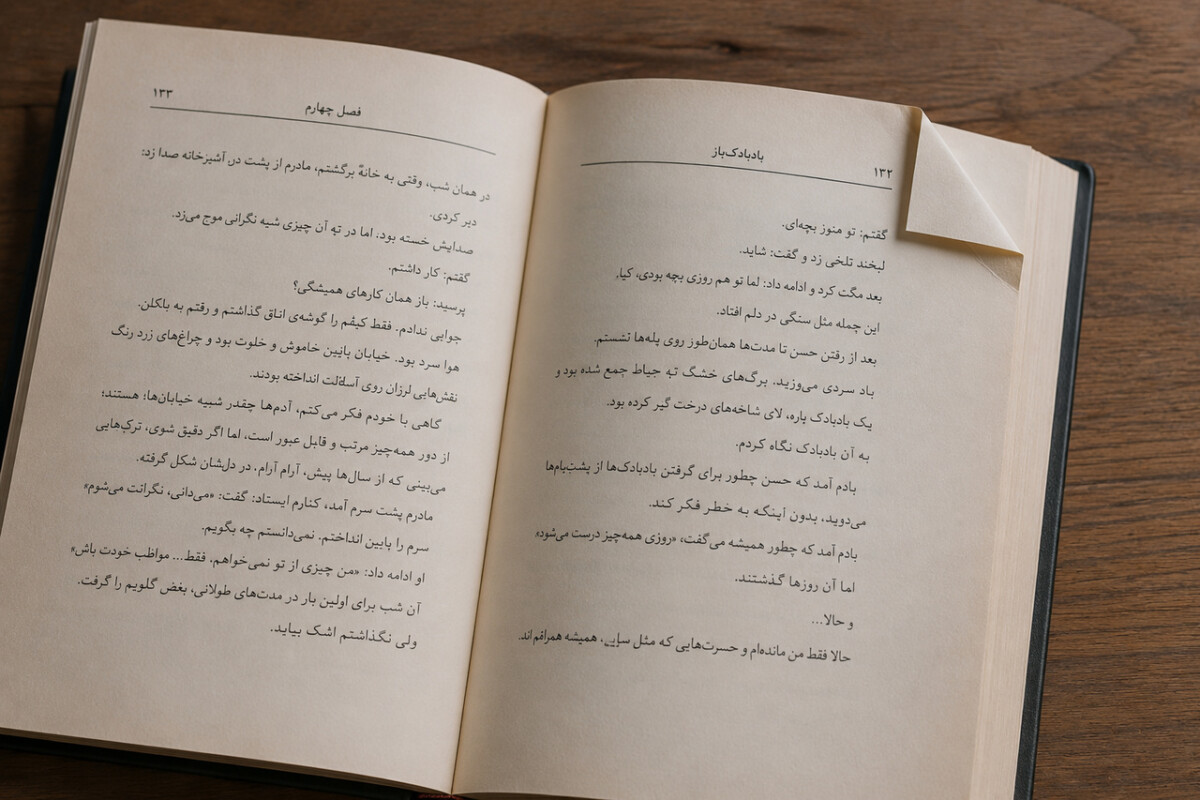 بادبادک‌باز
۱۳۲
گفتم: تو منوز بچه‌ای.
لبخند تلخی زد و گفت: شاید.
بعد مگت کرد و ادامه داد: لما تو هم روزی بچه بودی، کیا.
این چمله مثل سنگی در دلم افتاد.
بعد از رفتن حسن تا مدت‌ها همان‌طوز روی پله‌ها نشستم.
باد سردی می‌وزید. برگ‌های خشگ تهِ جیاط جمع شده بود و
یک بادبادک پاره، لای شاخه‌های درخت گیر کرده بود.
به آن بادبادک نگاه کردم.
بادم آمد که حسن چطور برای گرفتن بادبادک‌ها از پشت‌بام‌ها
می‌دوید، بدون اینکه به خطر فکر کند.
بادم آمد که چطور همیشه می‌گفت، «روزی همه‌چیز درست می‌شود»
اما آن روزها گذشتند.
و حالا...
حالا فقط من مانده‌ام و حسرت‌هایی که مثل همیشه
۱۳۳
فصل چهارم
در همان شب، وقتی به خانهٔ برگشتم، مادرم از پشت در آشپزخانه صدا زد:
دیر کردی.
صدایش خسته بود: اما در تهِ آن چیزی شیه نگرانی موج می‌زد.
گفتم: کار داشتم.
پرسید: باز همان کارهای همیشگی؟
جوابی ندادم. فقط کیفم را گوشه‌ی اتاق گذاشتم و رقتم به بلکلن.
هوا سرد بود. خیابان پایین خاموش و خلوت بود و چراغ‌های زرد رنگ
نقش‌هایی لرزان روی انداخته بودند.
گاهی با خودم فکر می‌کتم، آدم‌ها چقدر شبیه خیابان‌ها؛ هستند؛
از دور همه‌چیز مرتب و قابل عبور است، اما اگر دقیق شوی، ترک‌هایی
می‌بینی که از سال‌ها پیش، آرام آرام، در دلشان شکل گرفته.
مادرم پشت سرم آمد، کنارم ایستاد: گفت: «می‌دانی، نگرانت می‌شوم»
سرم را پایین انداختم. نمی‌دانستم چه بگویم.
او ادامه داد: «من چیزی از تو نمی‌خواهم، فقط... مواظب خودت باش»
آن شب برای اولین بار در مدت‌های طولانی، بغض گلویم را گرفت.
ولی نگذاشتم اشک بیاید.